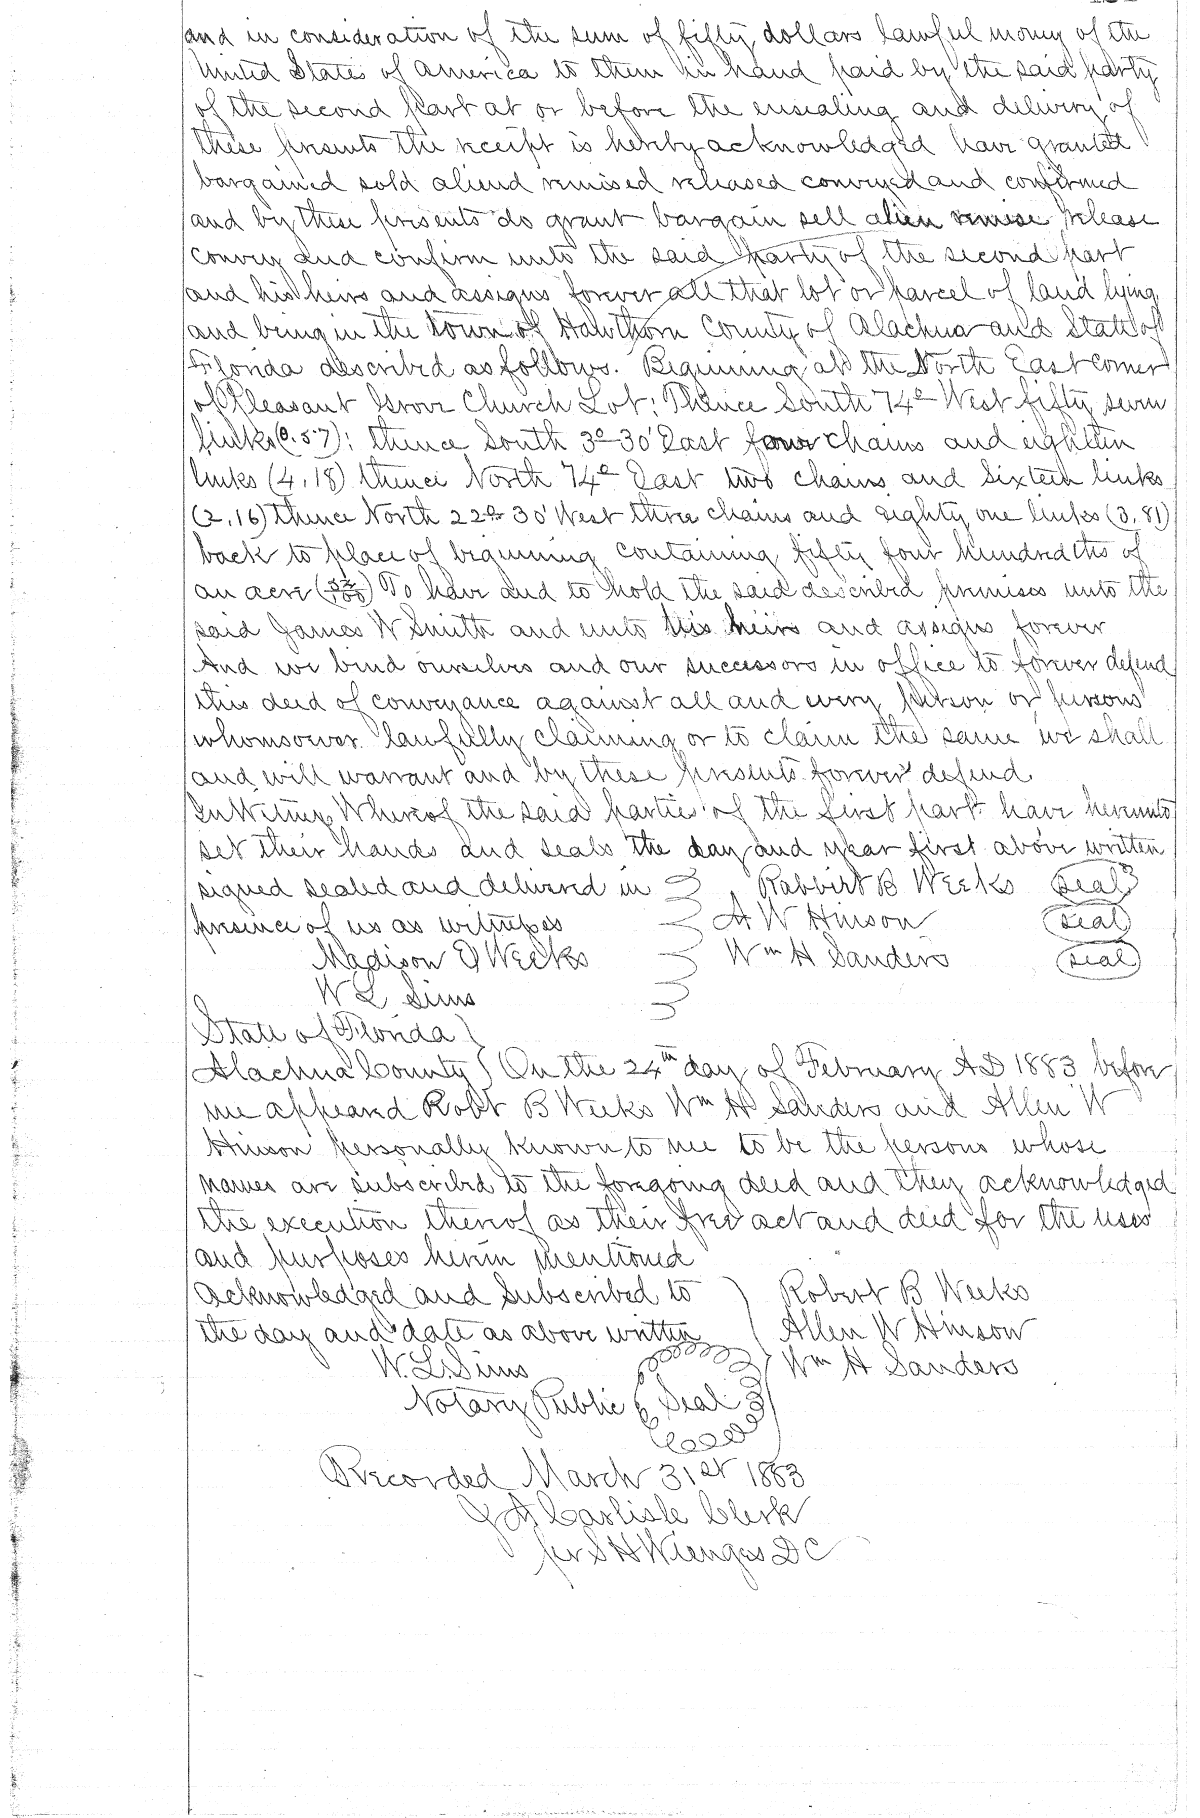 and in consideration of the sum of fifty dollars lawful money of the
United States of America to them in hand paid by the said party
of the second part at or before the ensealing and delivery of
these presents the receipt is hereby acknowledged have granted
bargained sold aliend remised released conveyed and confirmed
and by these presents do grant bargain sell alien remise release
convey and confirm unto the said party of the second part
and his heirs and assigns forever all that lot or parcel of land lying
and being in the town of Hawthorn County of Alachua and State of
Florida described as follows. Beginning at the North East corner
of Pleasant Grove Church Lot; Thence South 74° West fifty seven
links (0.57); thence South 3° 30' East four chains and eighteen
links (4.18) thence North 74° East two chains and Sixteen links
(2.16) thence North 22° 30' West three chains and eighty one links (3.81)
back to place of beginning containing fifty four hundredths of
an acre (54/100) To have and to hold the said described premises unto the
said James W Smith and unto his heirs and assigns forever
And we bind ourselves and our successors in office to forever defend
this deed of conveyance against all and every person or persons
whomsoever lawfully claiming or to claim the same we shall
and will warrant and by these presents forever defend
In Witness Whereof the said parties of the first part have hereunto
set their hands and seals the day and year first above written
signed sealed and delivered in Robbert B Weeks seal
presence of us as witnesses A W Hinson seal
Madison D Weeks Wm H Sanders seal
W L Sims
State of Florida
Alachua County On the 24th day of February AD 1883 before
me appeared Robt B Weeks Wm H Sanders and Allen W
Hinson personally known to me to be the persons whose
names are subscribed to the foregoing deed and they acknowledged
the execution thereof as their free act and deed for the uses
and purposes herein mentioned
Acknowledged and Subscribed to Robert B Weeks
the day and date as above written Allen W Hinson
W. L. Sims Wm H Sanders
Notary Public Seal
Recorded March 31st 1883
J A Carlisle Clerk
per S H Wienges DC